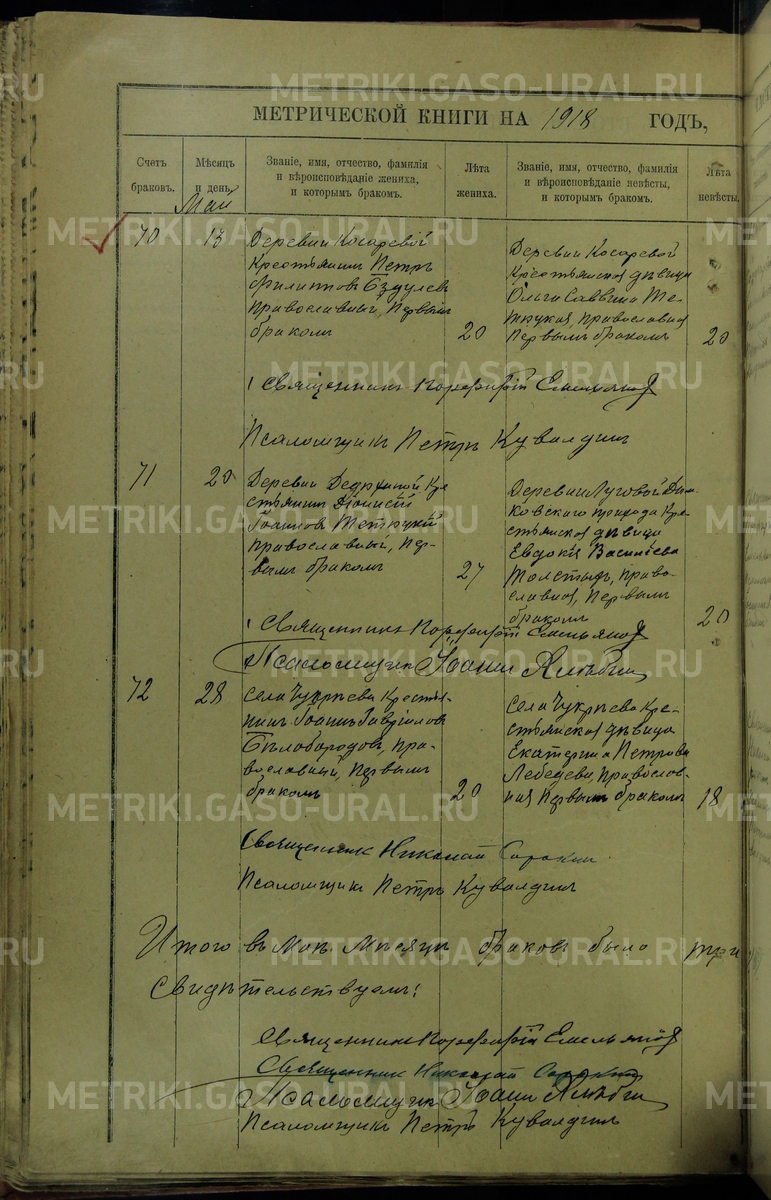 METRIKI.GASO-URAL.RU
МЕТРИЧЕСКОЙ КНИГИ НА 1918 ГОДЪ,
Счетъ браковъ.
Мѣсяцъ и день.
Званіе, имя, отчество, фамилія
и вѣроисповѣданіе жениха,
и которымъ бракомъ.
Лѣта жениха.
Званіе, имя, отчество, фамилія
и вѣроисповѣданіе невѣсты,
и которымъ бракомъ.
Лѣта невѣсты.
Май
70
13
Деревни Косаревой
крестьянинъ Петръ
Филипповъ Бздулевъ
православный, первымъ
бракомъ
20
Деревни Косаревой
крестьянская дѣвица
Ольга Саввина
православная
первымъ бракомъ
20
Священникъ Порфирій Емельяновъ
Псаломщикъ Петръ Кувалдинъ
71
20
Деревни Кре
стьянинъ Діонисій
Іоанновъ
православный, пер-
вымъ бракомъ
27
Деревни Луговой
ковскаго прихода кре-
стьянская дѣвица
Евдокія Василіева
Толстыхъ, право-
славная, первымъ
бракомъ
20
Священникъ Порфирій Емельяновъ
Псаломщикъ Іоаннъ
72
28
Села Чукреева крестья-
нинъ Іоаннъ Гавріиловъ
Бѣлобородовъ, пра-
вославный, первымъ
бракомъ
20
Села Чукреева кре-
стьянская дѣвица
Екатерина Петрова
Лебедева, православ-
ная первымъ бракомъ
18
Священникъ Николай Сорокин
Псаломщикъ Петръ Кувалдинъ
Итого въ Маѣ мѣсяцѣ браковъ было три
Свидѣтельствуемъ:
Священникъ Порфирій Емельяновъ
Священник Николай Сорокин
Псаломщикъ Іоаннъ
Псаломщикъ Петръ Кувалдинъ